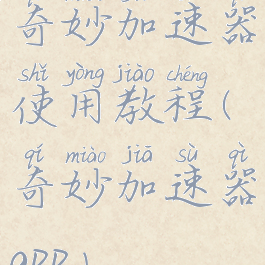 奇妙加速器
shǐ yòng jiào chéng
使用教程(
qí miào jiā sù qì
奇妙加速器